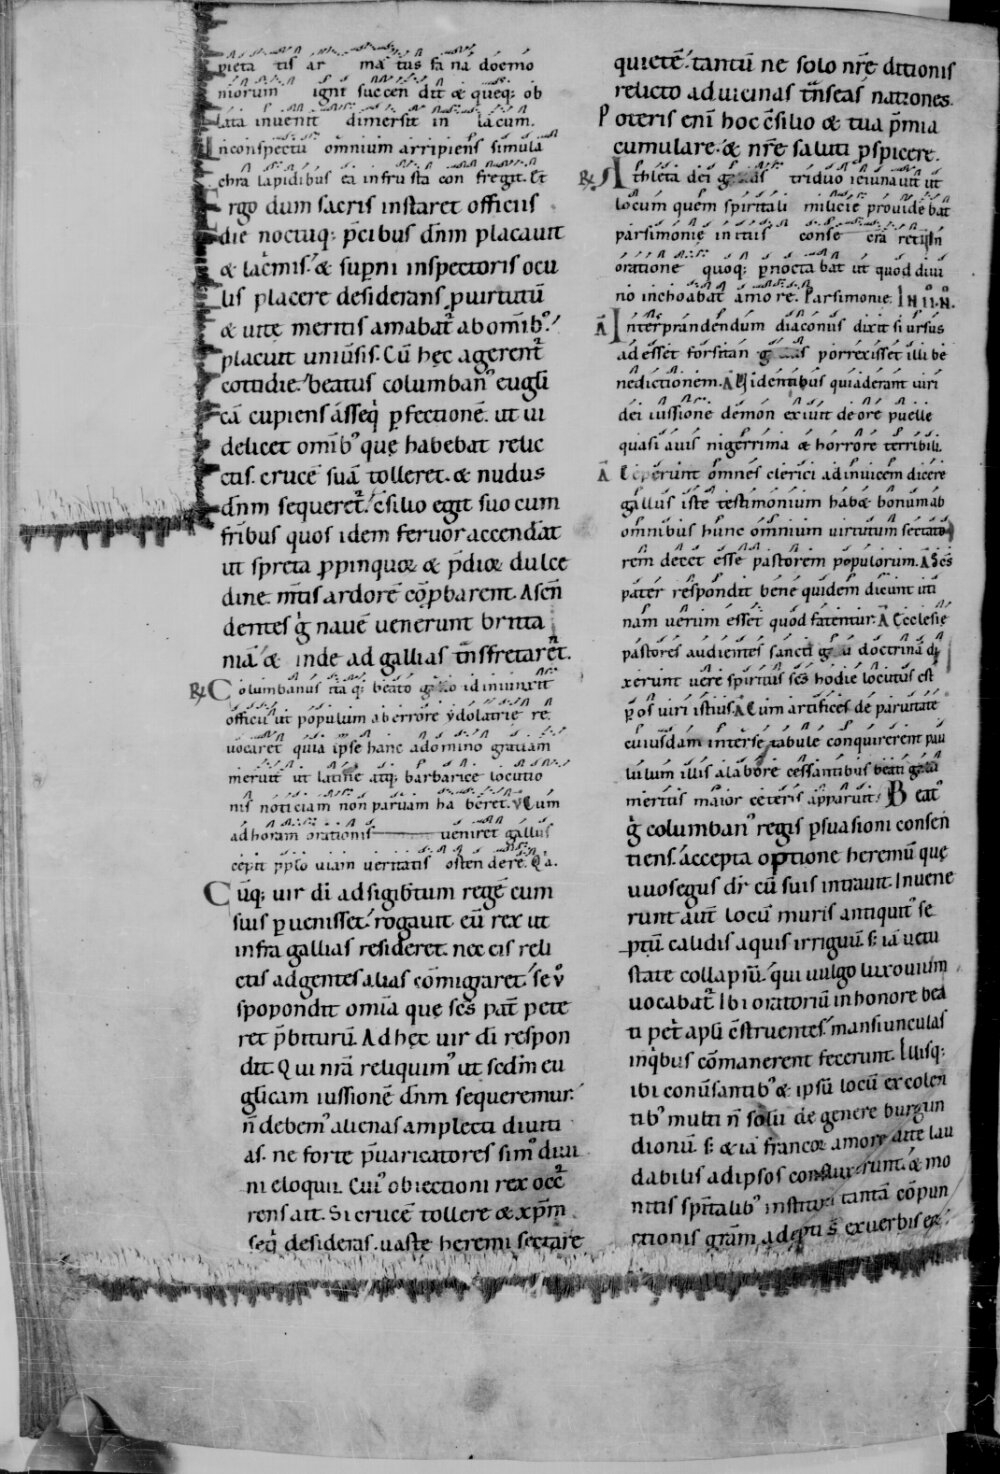 pieta tis ar ma tus fa na doemo
niorum igni succen dit & queq; ob
lata invenit dimersit in lacum.
Inconspectu omnium arripiens simula
chra lapidibus ea infru sta con fregit. Et
Ergo dum sacris instaret officiis
die noctuq; p̄cibus dn̄m placauit
& lac̄mis. & sup̄ni inspectoris ocu
lis placere desiderans. p uirtutū
& uitę meritis amabat᷑ ab om̄ib;
placuit uniūsis. Cū hęc agerent᷑
cottidie. beatus columban᷒ eugli
cā cupiens ass̄eq̄ p̱fectionē. ut ui
delicet om̄ib᷒ quę habebat relic
tis. crucē suā tolleret. & nudus
dn̄m sequeret᷑. c̄silio egit suo cum
fr̄ibus quos idem feruor accendāt
ut spreta p̱pinquoꝝ & p̄dioꝝ dulce
dine. m̄tis ardorē cōp̱barent. Ascen
dentes g̊ nauē uenerunt britta
niā. & inde ad gallias tn̄sfretarēt.
R̸ Columbanus ita q; beato gallo id iniunxit
officiū ut populum ab errore ydolatrię re
uocaret quia ipse hanc adomino gratiam
meruit ut latine atq; barbarice locutio
nis noticiam non paruam ha beret. V Cum
ad horam orationis ueniret gallus
cepit pp̱lo uiam ueritatis osten dere. Q̇a.
Cūq; uir dī ad sigib̄tum regē cum
suis p̱uenisset. rogauit eū rex ut
infra gallias resideret. nec eis reli
ctis ad gentes alias cōmigraret. se ů
spopondit omīa que ses pat̄ pete
ret p̄biturū. Ad hęc uir dī respon
dit. Qui nr̄a reliquim᷒ ut sedm̄ eu
glicam iussionē dn̄m sequeremur.
n̄ debem᷒ alienas amplecti diuiti
as. ne forte p̄uaricatores sim᷒ diui
ni eloquii. Cui᷒ obiectioni rex occ᷑
rens ait. Si crucē tollere & xp̄m
seq̇ desideras. uastę heremi sectare
quietē. tantū ne solo nr̄e ditionis
relicto ad uicinas tn̄seas nationes.
Poteris enī hoc c̄silio & tua p̄mia
cumulare. & nr̄e saluti p̱spicere.
R̸ Athleta dei gallus triduo ieiunauit ut
locum quem spiritali milicię prouide bat
parsimonię initiis conse cra ret
oratione quoq; p̱nocta bat ut quod diui
no inchoabat amo re. Parsimonie. IN II. N.
A Interprandendum diaconus dixit si ursus
ad esset forsitan gallus porrexisset illi be
nedictionem. A Videntibus quiaderant uiri
dei iussione demon exiuit de ore puelle
quasi auis nigerrima & horrore terribili.
A Ceperunt omnes clerici adinuicem dicere
gallus iste testimonium hab& bonum ab
omnibus hunc omnium uirtutum sectato
rem decet esse pastorem populorum. A Ses
pater respondit bene quidem dicunt uti
nam uerum esset quod fatentur. A Ecclesie
pastores audientes sancti galli doctrinā di
xerunt uere spiritus ses hodie locutus est
p̱ os uiri istius. A Cum artifices de paruitate
cuiusdam inter se tabule conquirerent pau
lulum illis a labore cessantibus beati galli
meritis maior ceteris apparuit. Beat᷒
g̊ columban᷒ regis p̱suasioni consen
tiens. accepta optione heremū que
uuosegus dr̄ cū suis intrauit. Inuene
runt aut̄ locū muris antiquit᷒ se
ptū calidis aquis irriguū. s; iā uetu
state collapsū. qui uulgo luxouium
uocabat᷑. Ibi oratoriū in honore bea
ti pet̄ apl̄i c̄struentes. mansiunculas
inq̇bus cōmanerent fecerunt. Illisq;
ibi conūsantib᷒ & ipsū locū excolen
tib᷒ multi n̄ solū de genere burgun
dionū. s; & iā francoꝝ amore uite lau
dabilis ad ipsos confluxerunt. & mo
nitis spīralib᷒ instituti tantā cōpun
ctionis gr̄am adepti s̄ ex uerbis ei᷒.